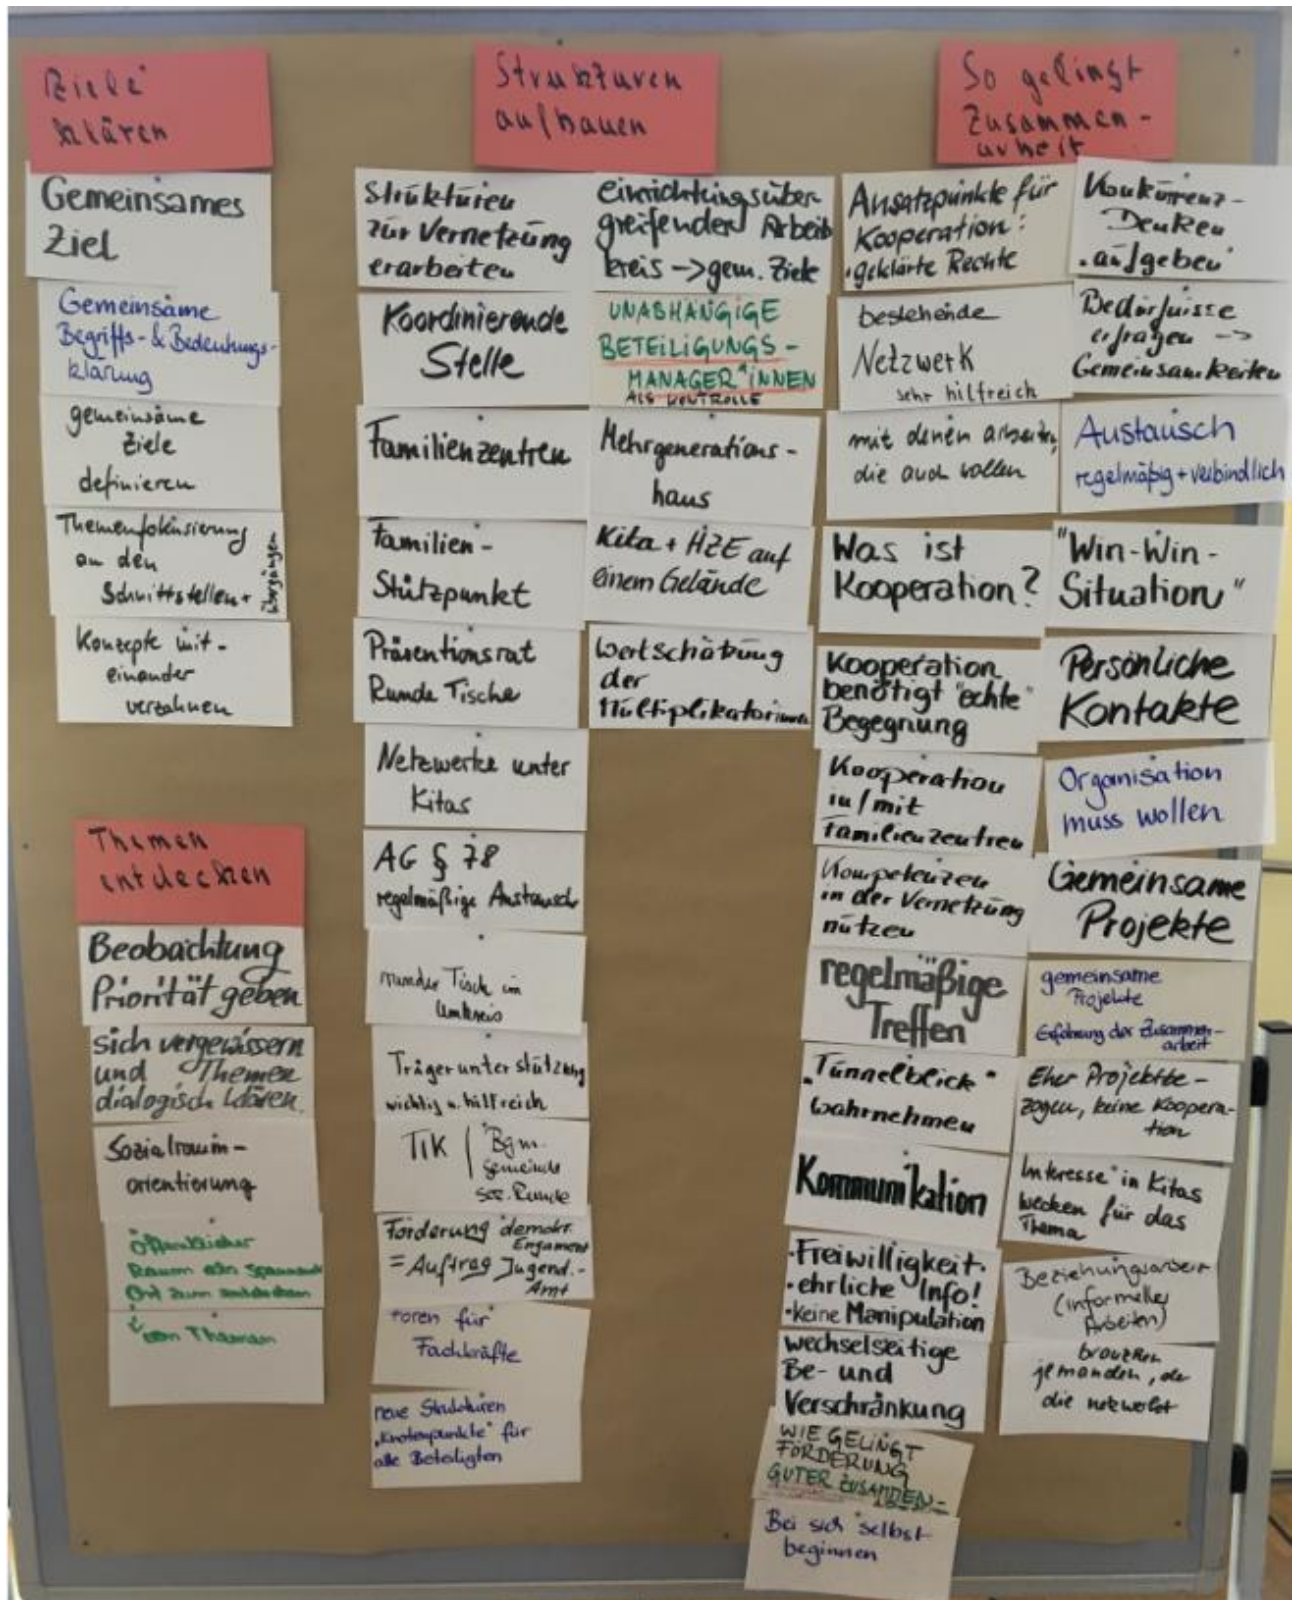 Ziele
klären
Gemeinsames
Ziel
Gemeinsame
Begriffs- & Bedeutungs-
klärung
gemeinsame
Ziele
definieren
Themenfokusierung
an den
Schnittstellen +
Übergängen
Konzepte mit-
einander
verzahnen
Themen
entdecken
Beobachtung
Priorität geben
sich vergewissern
und Themen
dialogisch klären.
Sozialraum-
orientierung
öffentlicher
Raum ein spannender
Ort zum entdecken
von Themen
Strukturen
aufbauen
Strukturen
zur Vernetzung
erarbeiten
Koordinierende
Stelle
Familienzentren
Familien-
Stützpunkt
Präventionsrat
Runde Tische
Netzwerke unter
Kitas
AG § 78
regelmäßige Austausch
runder Tisch im
Umkreis
Trägerunterstützung
wichtig u. hilfreich
TIK
Bgm.
Gemeinde
soz. Runde
Förderung demokr.
= Auftrag Jugend.-
Amt
Foren für
Fachkräfte
neue Strukturen
"Knotenpunkte" für
alle Beteiligten
einrichtungsüber-
greifenden Arbeits
kreis -> gem. Ziele
UNABHÄNGIGE
BETEILIGUNGS-
MANAGER*INNEN
ALS KONTROLLE
Mehrgenerations-
haus
Kita + HZE auf
einem Gelände
Wertschätzung
der
Multiplikatorinnen
So gelingt
Zusammen-
arbeit
Ansatzpunkte für
Kooperation:
• geklärte Rechte
bestehende
Netzwerk
sehr hilfreich
mit denen arbeiten,
die auch wollen
Was ist
Kooperation?
Kooperation
benötigt "echte"
Begegnung
Kooperation
in/mit
Familienzentren
Kompetenzen
in der Vernetzung
nutzen
regelmäßige
Treffen
"Tunnelblick"
wahrnehmen
Kommunikation
• Freiwilligkeit.
• ehrliche Info!
• keine Manipulation
wechselseitige
Be- und
Verschränkung
WIE GELINGT
FÖRDERUNG
GUTER ZUSAMMEN-
Bei sich selbst
beginnen
Konkurrenz-
Denken
aufgeben
Bedürfnisse
erfragen ->
Gemeinsamkeiten
Austausch
regelmäßig + verbindlich
"Win-Win-
Situation"
Persönliche
Kontakte
Organisation
muss wollen
Gemeinsame
Projekte
gemeinsame
Projekte
Erfahrung der Zusammen-
arbeit
Eher Projektbe-
zogen, keine Koopera-
tion
Interesse in Kitas
wecken für das
Thema
Beziehungsarbeit
(informelles
Arbeiten)
brauchen
jemanden, der
die netzwerkt